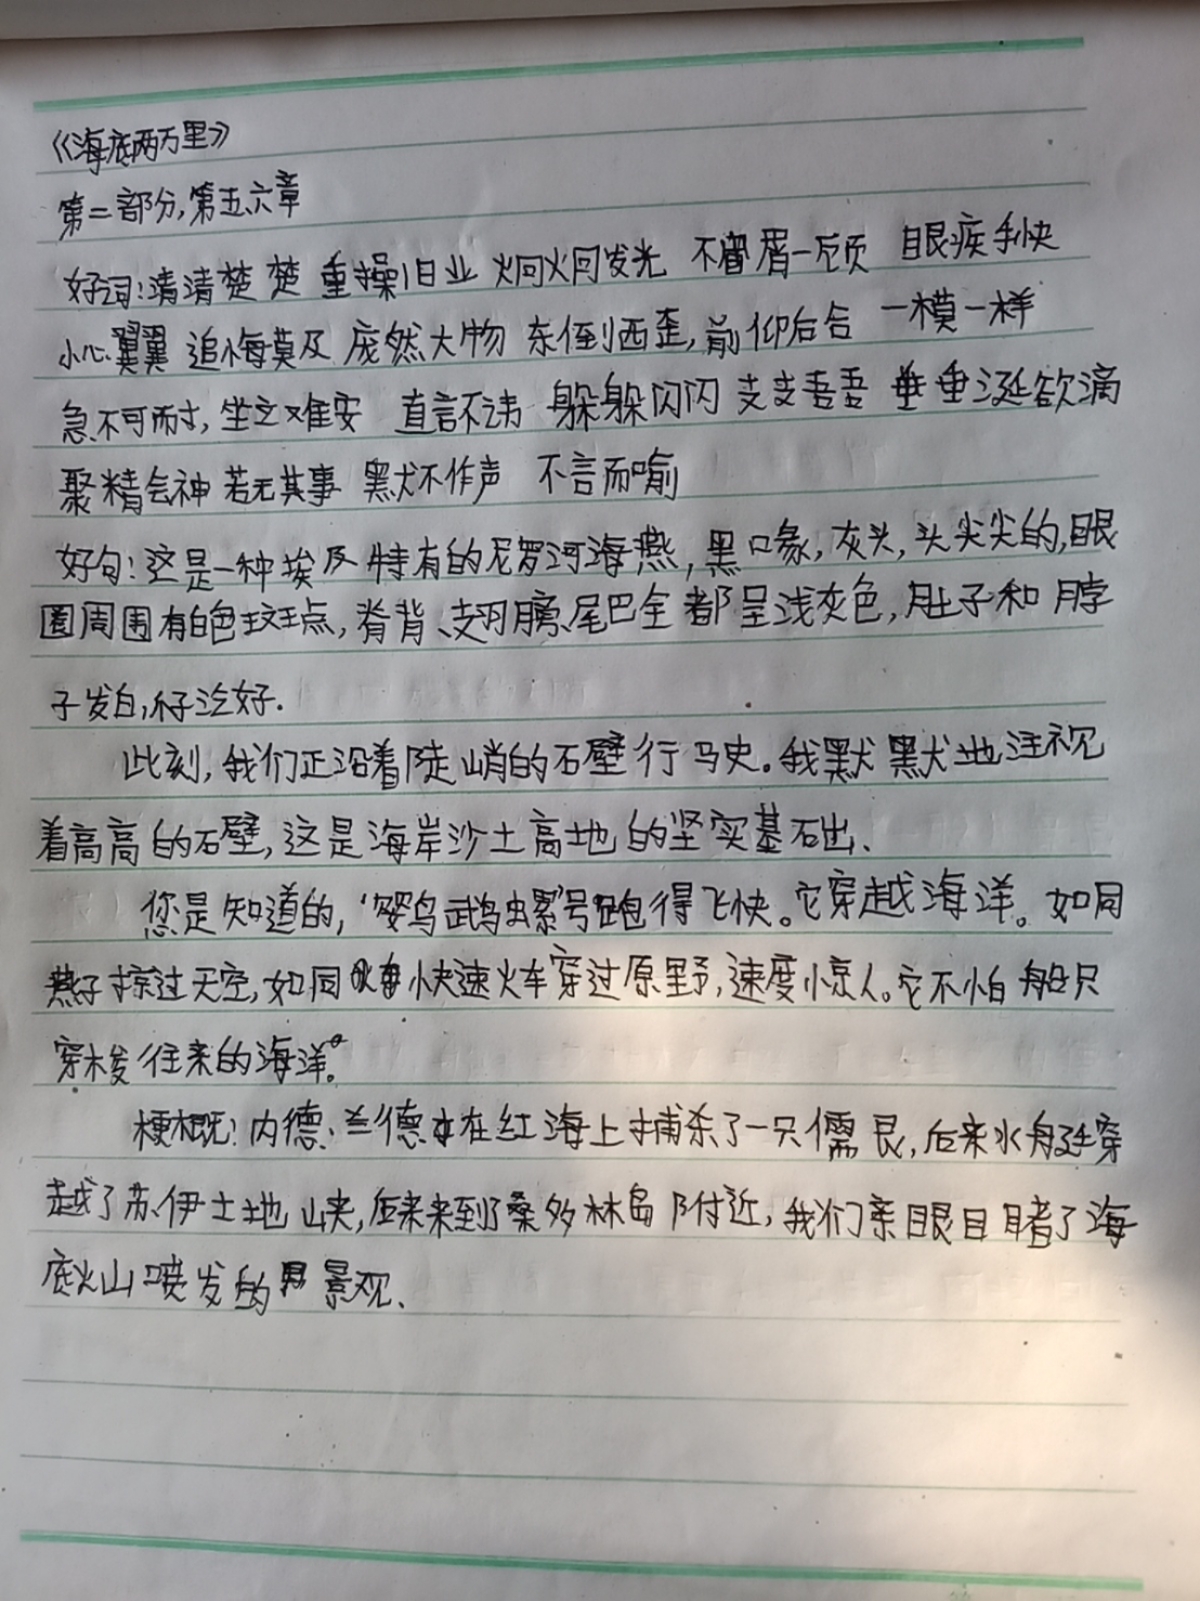 《海底两万里》
第二部分,第五、六章
好词:清清楚楚 重操旧业 炯炯发光 不屑一顾 眼疾手快
小心翼翼 追悔莫及 庞然大物 东倒西歪,前仰后合 一模一样
急不可耐,坐立难安 直言不讳 躲躲闪闪 支支吾吾 垂垂涎欲滴
聚精会神 若无其事 默不作声 不言而喻
好句:这是一种埃及特有的尼罗河海燕,黑口喙,灰头,头尖尖的,眼
圈周围有白色斑点,脊背、翅膀、尾巴全都呈浅灰色,肚子和脖
子发白,
此刻,我们正沿着陡峭的石壁行驶。我默默地注视
着高高的石壁,这是海岸沙土高地的坚实基石出、
您是知道的,“鹦鹉螺”号跑得飞快。它穿越海洋。如同
燕子掠过天空,如同快速火车穿过原野,速度惊人。它不怕船只
穿梭往来的海洋。
梗概:内德·兰德在红海上捕杀了一只儒艮,后来水艇穿
越了苏伊士地峡,后来来到了桑多林岛附近,我们亲眼目睹了海
底火山喷发的景观、